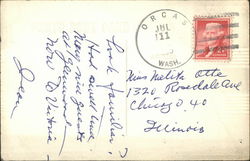 Look familiar?
Had small time
Many nice guests
at Glenwood
Now to Victoria -
Jean
ORCAS
JUL
11
WASH.
Miss Melita Otte
1320 Rosedale Ave
Chicago 40
Illinois